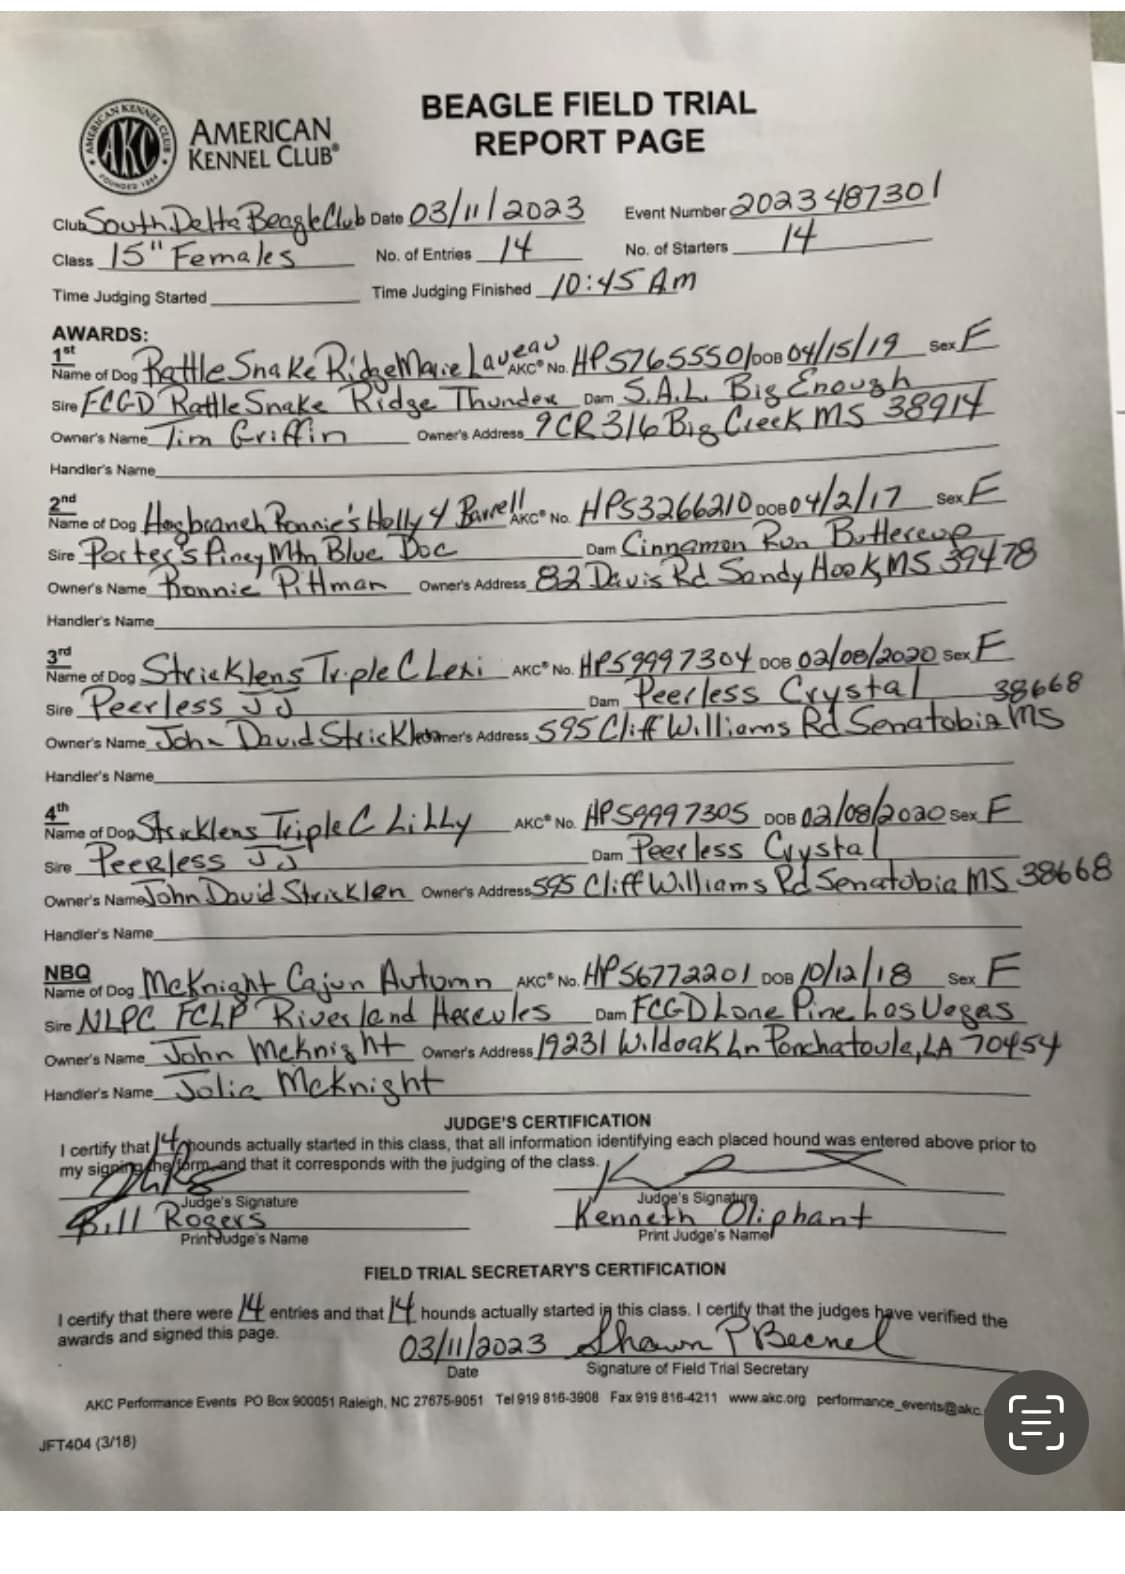 BEAGLE FIELD TRIAL
REPORT PAGE
AMERICAN KENNEL CLUB
AKC
FOUNDED 1884
AMERICAN
KENNEL CLUB®
Club South Delta Beagle Club Date 03/11/2023 Event Number 2023487301
Class 15" Females No. of Entries 14 No. of Starters 14
Time Judging Started Time Judging Finished 10:45 Am
AWARDS:
1st
Name of Dog Rattle Snake Ridge Marie Laveau AKC® No. HP57655501 DOB 04/15/19 Sex F
Sire FCGD Rattle Snake Ridge Thunder Dam S.A.L. Big Enough
Owner's Name Tim Griffin Owner's Address 9 CR 316 Big Creek MS 38914
Handler's Name
2nd
Name of Dog Hogbranch Ronnie's Holly 4 Barrell AKC® No. HP53266210 DOB 04/2/17 Sex F
Sire Porter's Piney Mtn Blue Doc Dam Cinnamon Run Buttercup
Owner's Name Ronnie Pittman Owner's Address 82 Davis Rd Sandy Hook, MS 39478
Handler's Name
3rd
Name of Dog Stricklens Triple C Lexi AKC® No. HP59997304 DOB 02/08/2020 Sex F
Sire Peerless JJ Dam Peerless Crystal 38668
Owner's Name John David Stricklen Owner's Address 595 Cliff Williams Rd Senatobia MS
Handler's Name
4th
Name of Dog Stricklens Triple C Lilly AKC® No. HP59997305 DOB 02/08/2020 Sex F
Sire Peerless JJ Dam Peerless Crystal
Owner's Name John David Stricklen Owner's Address 595 Cliff Williams Rd Senatobia MS 38668
Handler's Name
NBQ
Name of Dog McKnight Cajun Autumn AKC® No. HP56772201 DOB 10/12/18 Sex F
Sire NLPC FCLP Riverland Hercules Dam FCGD Lone Pine Las Vegas
Owner's Name John McKnight Owner's Address 19231 Wildoak Ln Ponchatoula, LA 70454
Handler's Name Jolie McKnight
JUDGE'S CERTIFICATION
I certify that 14 hounds actually started in this class, that all information identifying each placed hound was entered above prior to
my signing the form, and that it corresponds with the judging of the class.
Judge's Signature Judge's Signature
Bill Rogers Kenneth Oliphant
Print Judge's Name Print Judge's Name
FIELD TRIAL SECRETARY'S CERTIFICATION
I certify that there were 14 entries and that 14 hounds actually started in this class. I certify that the judges have verified the
awards and signed this page.
03/11/2023 Shawn P Becnel
Date Signature of Field Trial Secretary
AKC Performance Events PO Box 900051 Raleigh, NC 27675-9051 Tel 919 816-3908 Fax 919 816-4211 www.akc.org performance_events@akc.
JFT404 (3/18)